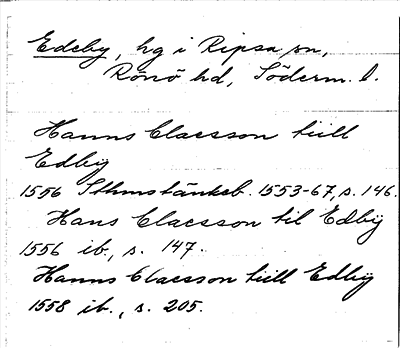 Edeby, hg i Ripsa sn,
Rönö hd, Söderm. l.
Hanns Claesson tiill
Edby
1556 Sthms tänkeb. 1553-67, s. 146.
Hans Claesson til Edbÿ
1556 ib., s. 147.
Hanns Claesson tiill Edbÿ
1558 ib., s. 205.